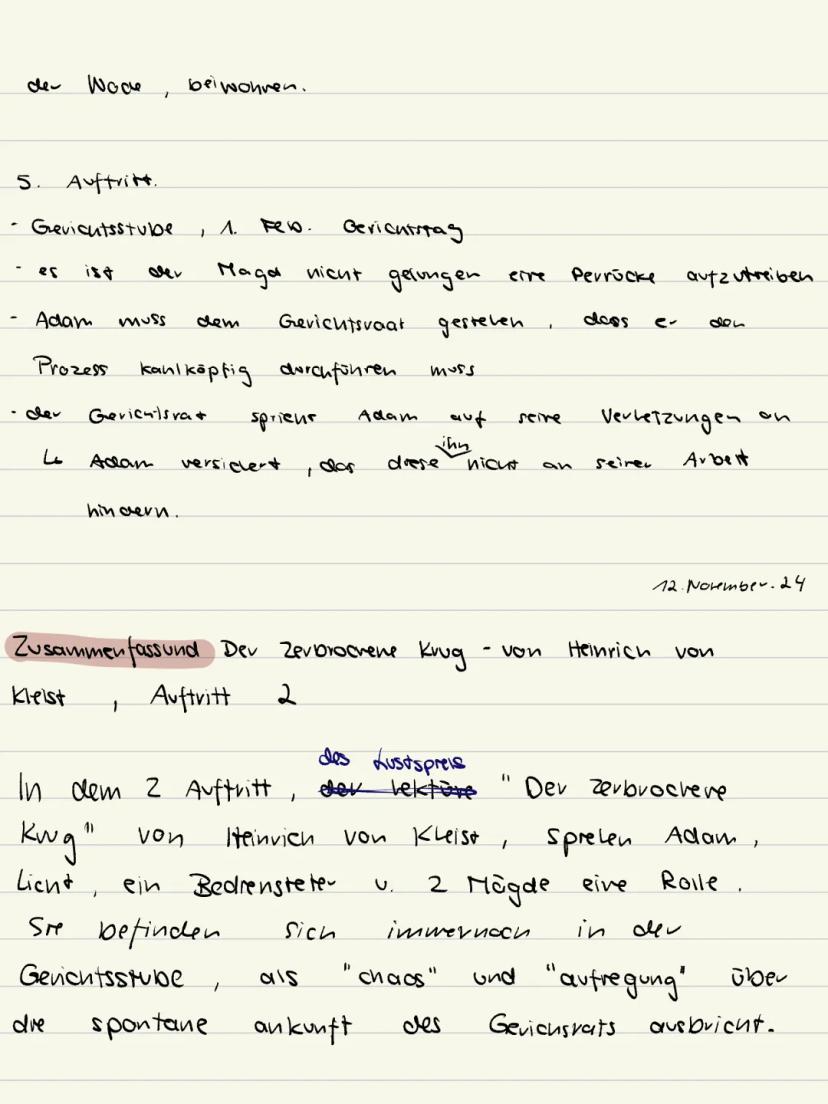 der Woche, beiwohnen.
5. Auftritt.
- Gerichtsstube, 1. Feb. Gerichtstag
- es ist der Magd nicht gelungen eine Perrücke aufzutreiben
- Adam muss dem Gerichtsraat gestehen, dass er den
Prozess kahlköpfig durchführen muss
- der Gerichtsrat spricht Adam auf seine Verletzungen an
↳ Adam versichert, das diese ihn nicht an seiner Arbeit
hindern.
12. November. 24
Zusammenfassund Der zerbrochene Krug - von Heinrich von
Kleist, Auftritt 2
In dem 2 Auftritt, der lektüre des Lustspiels "Der zerbrochene
Krug" von Heinrich von Kleist, spielen Adam,
Licht, ein Bediensteter u. 2 Mägde eine Rolle.
Sie befinden sich immernoch in der
Gerichtsstube, als "chaos" und "aufregung" über
die spontane ankunft des Gerichsrats ausbricht.